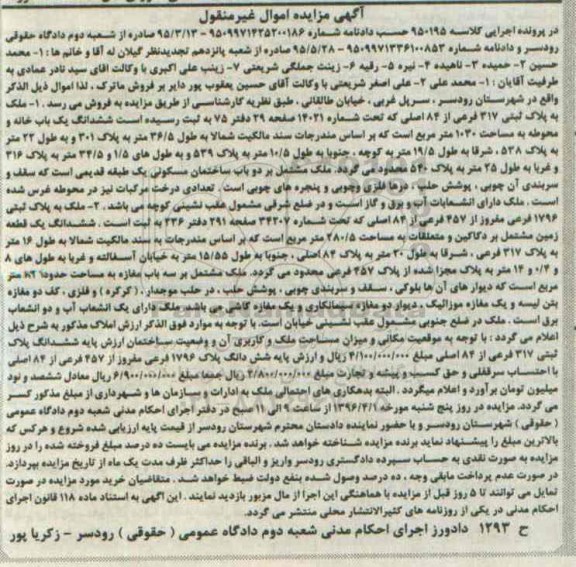 آگهی مزایده اموال غیرمنقول
در پرونده اجرایی کلاسه ۹۵۰۱۹۵ حسب دادنامه شماره ۹۵۰۹۹۷۱۴۲۵۲۰۰۱۸۶ - ۹۵/۳/۱۳ صادره از شعبه دوم دادگاه حقوقی
رودسر و دادنامه شماره ۹۵۰۹۹۷۱۳۳۶۱۰۰۸۵۳ - ۹۵/۵/۲۸ صادره از شعبه پانزدهم تجدیدنظر گیلان له آقا و خانم ها : ۱- محمد
حسین ۲- حمیده ۳- ناهیده ۴- نیره ۵- رقیه ۶- زینت جملگی شریعتی ۷- زینب علی اکبری با وکالت اقای سید نادر عمادی به
طرفیت آقایان : ۱- محمد علی ۲- علی اصغر شریعتی با وکالت آقای حسین یعقوب پور دایر بر فروش ماترک ، لذا اموال ذیل الذکر
واقع در شهرستان رودسر ، سرپل غربی ، خیابان طالقانی ، طبق نظریه کارشناسی از طریق مزایده به فروش می رسد . ۱- ملک
به پلاک ثبتی ۳۱۷ فرعی از ۸۴ اصلی که تحت شماره ۱۴۰۲۱ صفحه ۲۹ دفتر ۷۵ به ثبت رسیده است ششدانگ یک باب خانه و
محوطه به مساحت ۱۰۳۰ متر مربع است که بر اساس مندرجات سند مالکیت شمالا به طول ۳۶/۵ متر به پلاک ۳۰۱ و به طول ۲۲ متر
به پلاک ۵۳۸ ، شرقا به طول ۱۹/۵ متر به کوچه ، جنوبا به طول ۱۰/۵ متر به پلاک ۵۳۹ و به طول های ۱/۵ و ۳۴/۵ متر به پلاک ۳۱۶
و غربا به طول ۲۵ متر به پلاک ۵۴۰ محدود می گردد. ملک مشتمل بر دو باب ساختمان مسکونی یک طبقه قدیمی است که سقف و
سربندی آن چوبی ، پوشش حلب ، درها فلزی وچوبی و پنجره های چوبی است . تعدادی درخت مرکبات نیز در محوطه غرس شده
است . ملک دارای انشعابات آب و برق و گاز است و در ضلع شرقی مشمول عقب نشینی کوچه می باشد . ۲- ملک به پلاک ثبتی
۱۷۹۶ فرعی مفروز از ۴۵۷ فرعی از ۸۴ اصلی که تحت شماره ۳۴۲۰۷ صفحه ۲۹۱ دفتر ۲۳۶ به ثبت است . ششدانگ یک قطعه
زمین مشتمل بر دکاکین و متعلقات به مساحت ۲۸۰/۵ متر مربع است که بر اساس مندرجات به سند مالکیت شمالا به طول ۱۶ متر
به پلاک ۳۱۷ فرعی ، شرقا به طول ۲۰ متر به پلاک ۸۴ اصلی ، جنوبا به طول ۱۵/۵۵ متر به خیابان آسفالته و غربا به طول های ۸
و ۰/۴ و ۱۴ متر به پلاک مجزا شده از پلاک ۴۵۷ فرعی محدود می گردد. ملک مشتمل بر سه باب مغازه به مساحت حدود متر
مربع است که دیوار های آن ها بلوکی ، سقف و سربندی چوبی ، پوشش حلب ، در حلب موجدار ، ( کرکره ) و فلزی ، کف دو مغازه
بتن لیسه و یک مغازه موزائیک ، دیوار دو مغازه سیمانکاری و یک مغازه کاشی می باشد. ملک دارای یک انشعاب آب و دو انشعاب
برق است . ملک در ضلع جنوبی مشمول عقب نشینی خیابان است. با توجه به موارد فوق الذکر ارزش املاک مذکور به شرح ذیل
اعلام می گردد : با توجه به موقعیت مکانی و میزان مساحت ملک و کاربری آن و وضعیت ساختمان ارزش پایه ششدانگ پلاک
ثبتی ۳۱۷ فرعی از ۸۴ اصلی مبلغ ۴/۱۰۰/۰۰۰/۰۰۰ ریال و ارزش پایه شش دانگ پلاک ۱۷۹۶ فرعی مفروز از ۴۵۷ فرعی از ۸۴ اصلی
با احتساب سرقفلی و حق کسب و پیشه و تجارت مبلغ ۲/۸۰۰/۰۰۰/۰۰۰ ریال جمعا مبلغ ۶/۹۰۰/۰۰۰/۰۰۰ ریال معادل ششصد و نود
میلیون تومان برآورد و اعلام میگردد . البته بدهکاری های احتمالی ملک به ادارات و سازمان ها و شهرداری از مبلغ مذکور کسر
می گردد. مزایده در روز پنج شنبه مورخه ۱۳۹۶/۳/۱ از ساعت ۹ الی ۱۱ صبح در دفتر اجرای احکام مدنی شعبه دوم دادگاه عمومی
( حقوقی ) شهرستان رودسر و با حضور نماینده دادستان محترم شهرستان رودسر از قیمت پایه ارزیابی شده شروع و هرکس که
بالاترین مبلغ را پیشنهاد نماید برنده مزایده شناخته خواهد شد . برنده مزایده می بایست ده درصد مبلغ فروخته شده را در روز
مزایده به صورت نقدی به حساب سپرده دادگستری رودسر واریز و الباقی را حداکثر ظرف مدت یک ماه از تاریخ مزایده بپردازد.
در صورت عدم پرداخت مابقی وجه ، ده درصد وصول شده بنفع دولت ضبط خواهد شد . متقاضیان خرید مورد مزایده در صورت
تمایل می توانند تا ۵ روز قبل از مزایده با هماهنگی این اجرا از مال مزبور بازدید نمایند . این آگهی به استناد ماده ۱۱۸ قانون اجرای
احکام مدنی در یکی از روزنامه های کثیرالانتشار محلی منتشر می گردد.
ح ۱۲۹۳ دادورز اجرای احکام مدنی شعبه دوم دادگاه عمومی ( حقوقی ) رودسر - زکریا پور